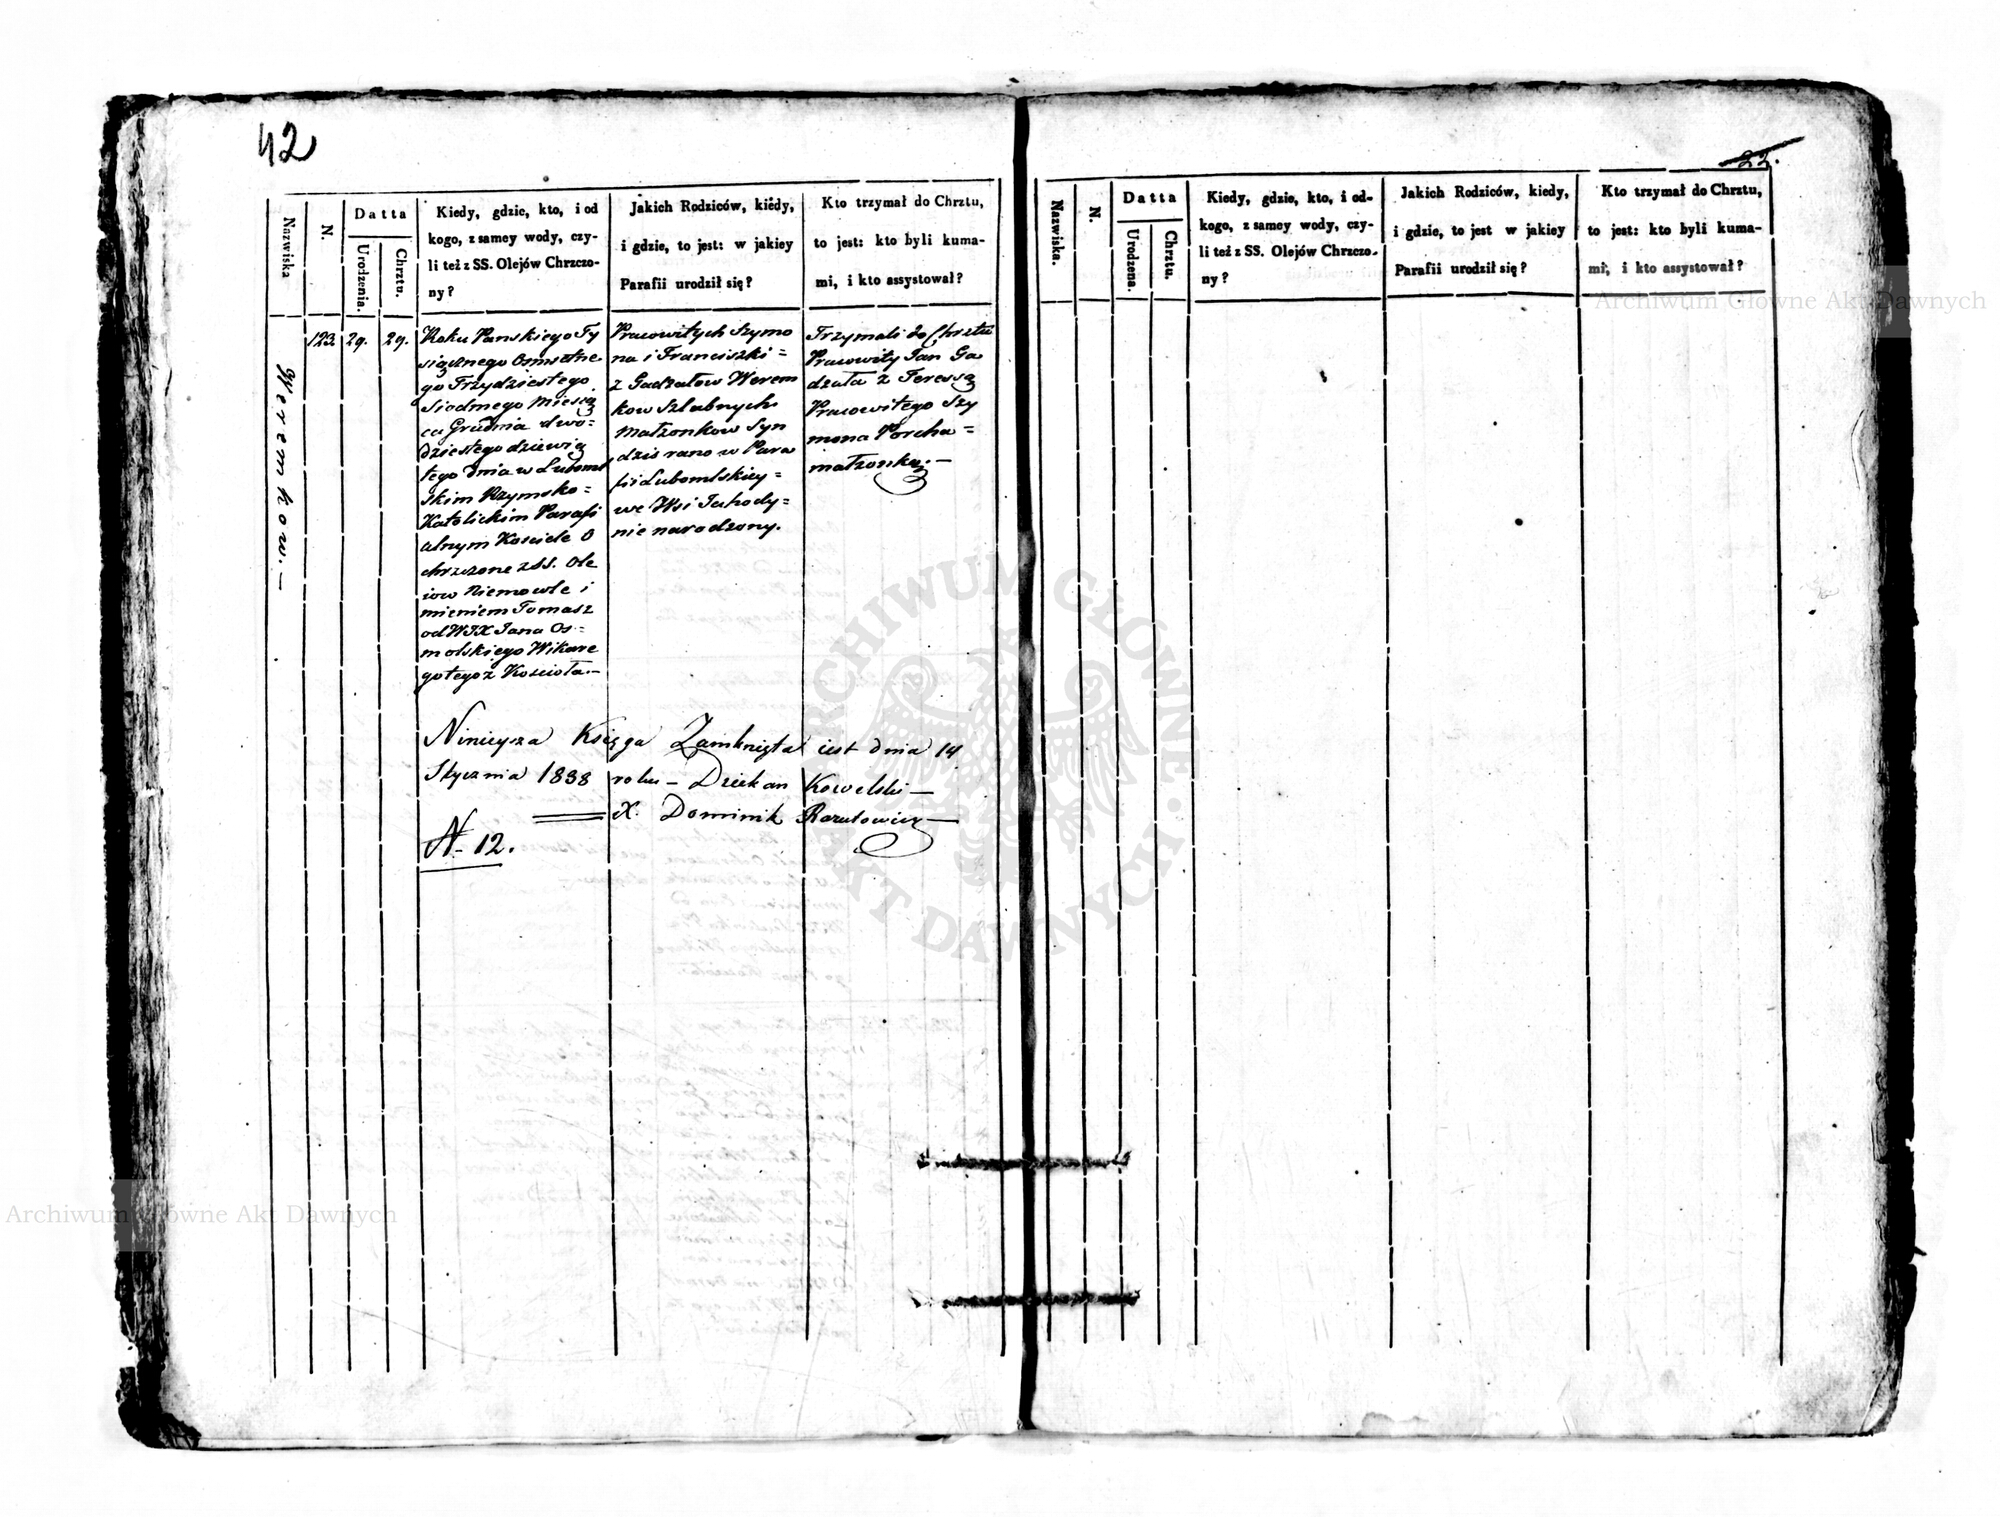 42
Nazwiska
N.
Datta
Urodzenia.
Chrztu.
Kiedy, gdzie, kto, i od
kogo, z samey wody, czy-
li też z SS. Olejów Chrzczo-
ny?
Jakich Rodziców, kiedy,
i gdzie, to jest: w jakiey
Parafii urodził się?
Kto trzymał do Chrztu,
to jest: kto byli kuma-
mi, i kto assystował?
Weremkow.—
123
29.
29.
Roku Panskiego Ty
siącznego Osmsetne
go Trzydziestego
Siodmego Miesią
ca Grudnia dwo-
dziestego dziewią
tego dnia w Luboml
skim Rzymsko-
Katolickim Parafi
alnym Kosciele O
chrzczone z SS. Ole
iow Niemowle i
mieniem Tomasz
od WJX Jana Os-
molskiego Wikare
go tegoż Koscioła.—
Pracowitych Szymo
na i Franciszki=
z Gadzałow Werem
kow Szlubnych
Małzonkow Syn
dzis rano w Para
fii Lubomlskiey=
we Wsi Jahody=
nie narodzony.
Trzymali do Chrztu
Pracowity Jan Ga
dzała z Teressą
Pracowitego Szy
mona Porcha=
małzonką.—
Ninieysza Księga Zamknięta iest dnia 14
Stycznia 1838 roku — Dziekan Kowelski —
X. Dominik
N. 12.
23.
Nazwiska.
N.
Datta
Urodzena.
Chrztu.
Kiedy, gdzie, kto, i od-
kogo, z samey wody, czy-
li też z SS. Olejów Chrzczo-
ny?
Jakich Rodziców, kiedy,
i gdzie, to jest w jakiey
Parafii urodził się?
Kto trzymał do Chrztu,
to jest: kto byli kuma-
mi, i kto assystował?
Archiwum Główne Akt Dawnych
ARCHIWUM GŁÓWNE AKT DAWNYCH
Archiwum Główne Akt Dawnych